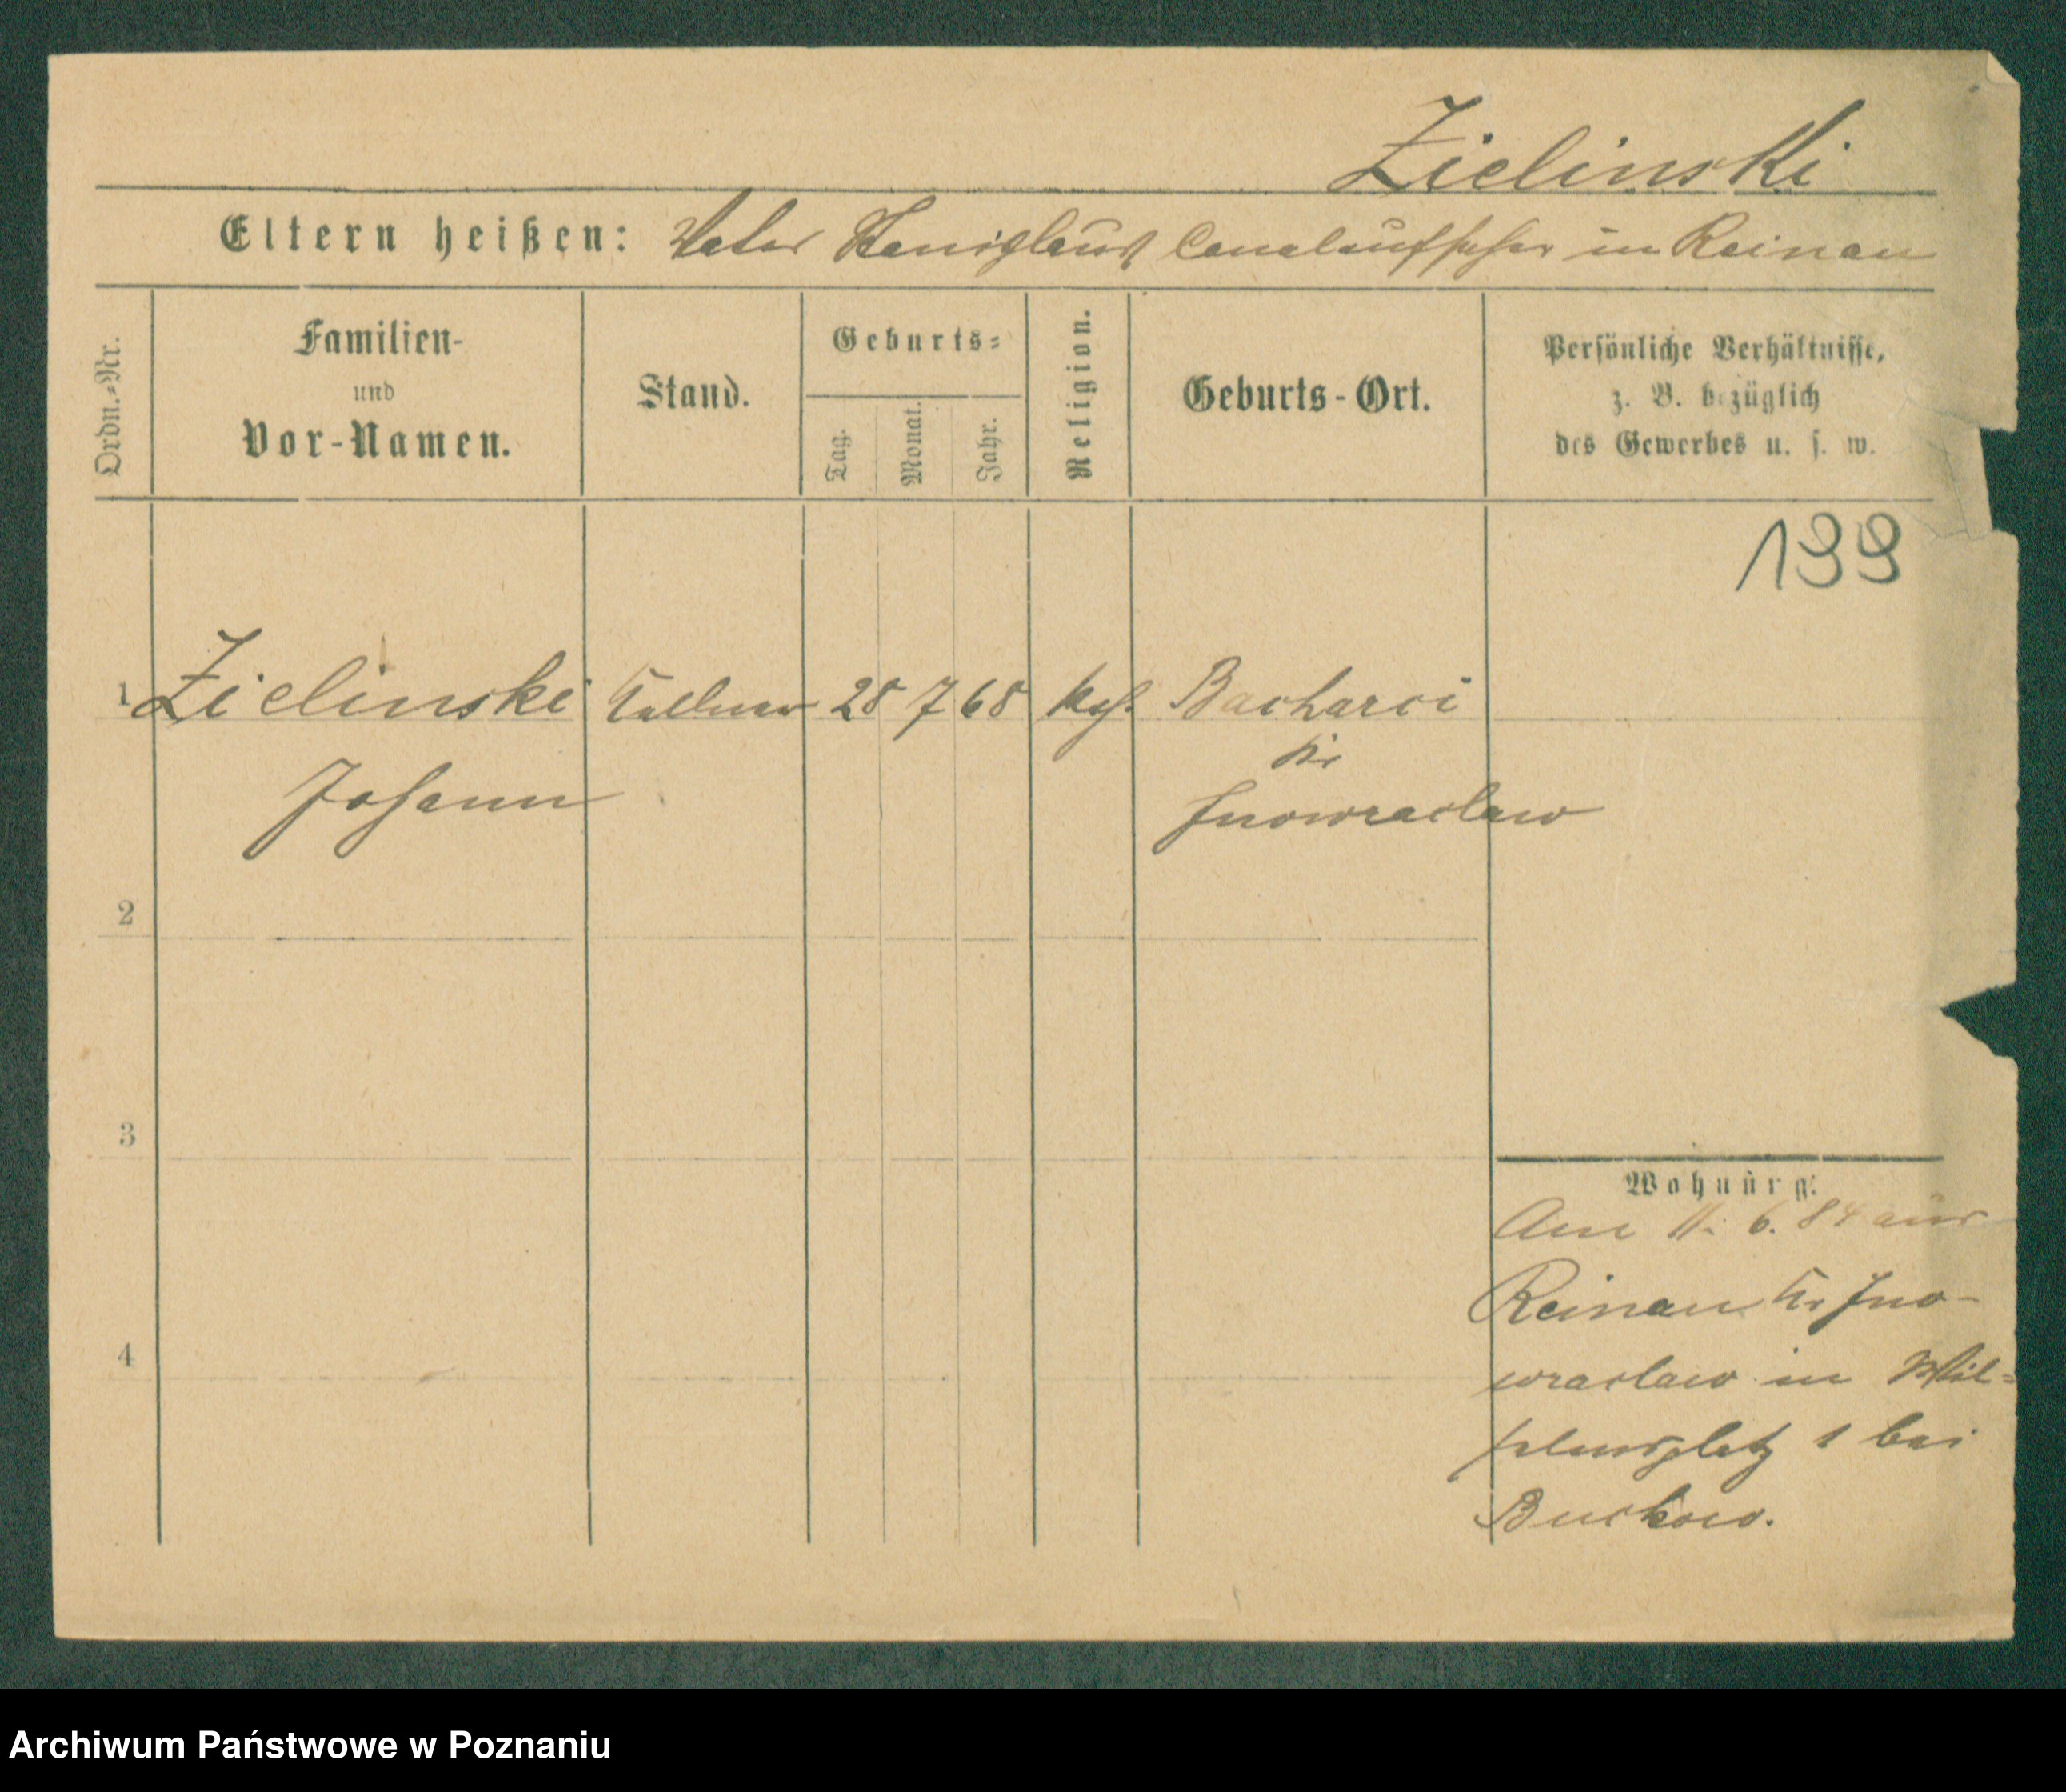 Zielinski
Eltern heißen: Vater Stanislaus Canalaufseher in Reinau
Ordn.-Nr.
Familien-
und
Vor-Namen.
Stand.
Geburts-
Tag.
Monat.
Jahr.
Religion.
Geburts-Ort.
Persönliche Verhältnisse,
z. B. bezüglich
des Gewerbes u. s. w.
199
1 Zielinski Kellner 28 7 68 kath. Bacharci
Kr
Johann Inowraclaw
2
3
4
Wohnung.
Am 11. 6. 84 aus
Reinau Kr Ino-
wraclaw in Wil-
helmsplatz 1 bei
Buckow.
Archiwum Państwowe w Poznaniu